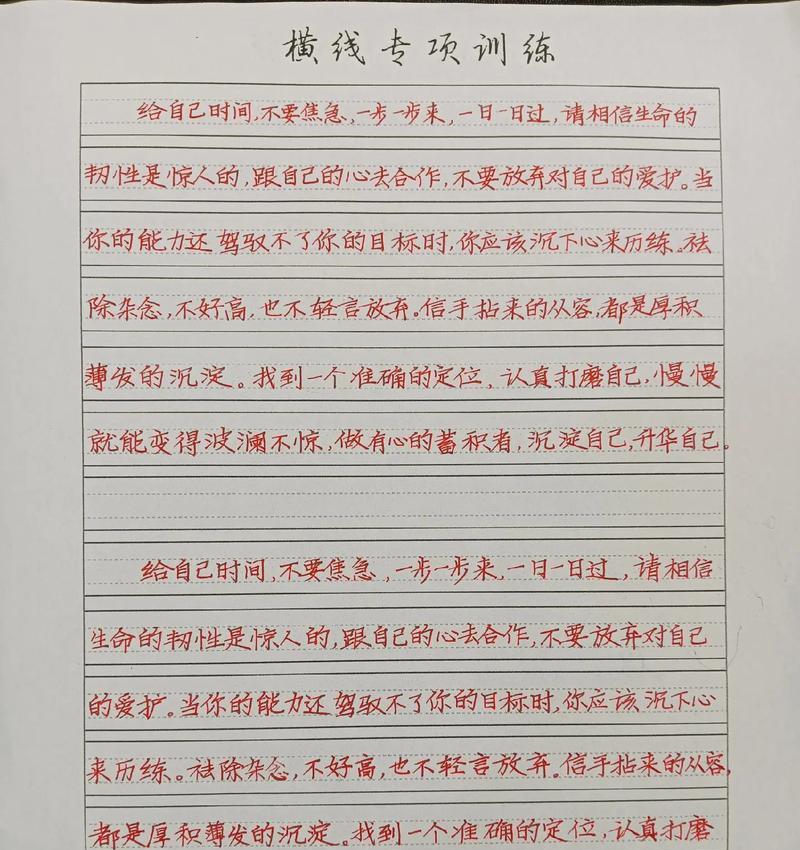 横线专项训练
给自己时间,不要焦急,一步一步来,一日一日过,请相信生命的
韧性是惊人的,跟自己的心去合作,不要放弃对自己的爱护。当
你的能力还驾驭不了你的目标时,你应该沉下心来历练。祛
除杂念,不好高,也不轻言放弃。信手拈来的从容,都是厚积
薄发的沉淀。找到一个准确的定位,认真打磨自己,慢慢
就能变得波澜不惊,做有心的蓄积者,沉淀自己,升华自己。
给自己时间,不要焦急,一步一步来,一日一日过,请相信
生命的韧性是惊人的,跟自己的心去合作,不要放弃对自己
的爱护。当你的能力还驾驭不了你的目标时,你应该沉下心
来历练。祛除杂念,不好高,也不轻言放弃。信手拈来的从容,
都是厚积薄发的沉淀。找到一个准确的定位,认真打磨